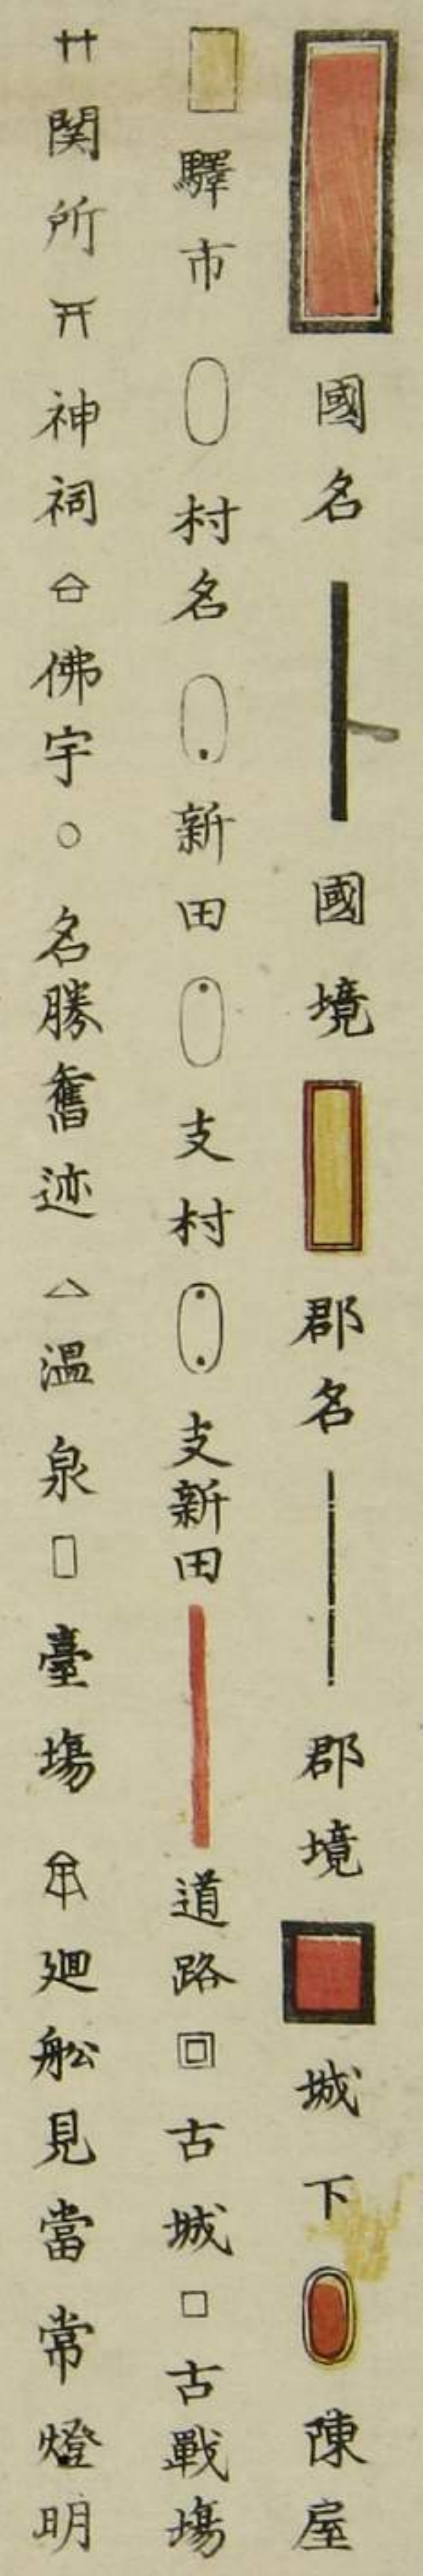 國名 國境 郡名 郡境 城下 陳屋
驛市 村名 新田 支村 支新田 道路 古城 古戰塲
関所 神祠 佛宇 名勝舊迹 温泉 臺塲 廻舩見當常燈明